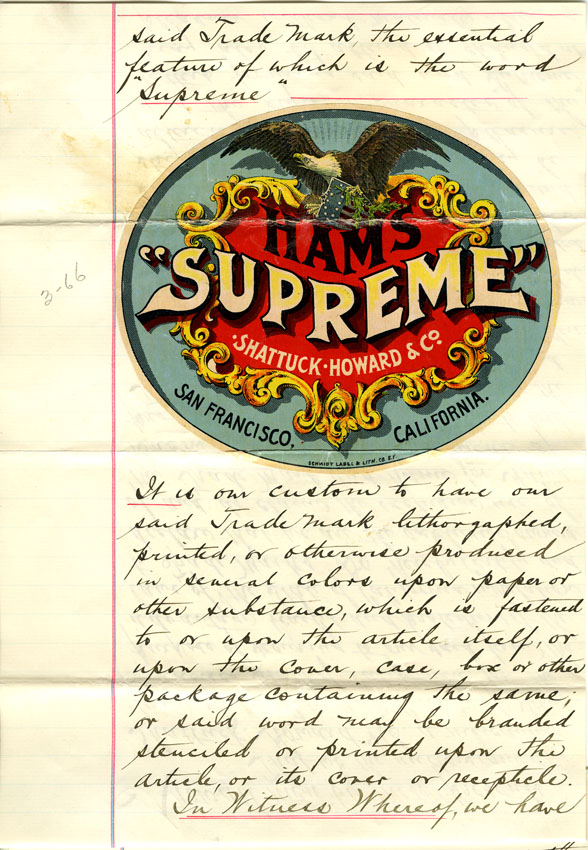 said Trade Mark, the essential
feature of which is the word
"Supreme"
HAMS
"SUPREME"
·SHATTUCK·HOWARD & Co
SAN FRANCISCO,
CALIFORNIA.
SCHMIDT LABEL & LITH. CO. S.F.
3-66
It is our custom to have our
said Trade Mark lithorgaphed,
printed, or otherwise produced
in several colors upon paper or
other substance, which is fastened
to or upon the article itself, or
upon the cover, case, box or other
package containing the same;
or said word may be branded
stenciled or printed upon the
article, or its cover or recepticle.
In Witness Whereof, we have